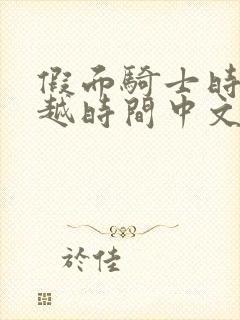 假而騎士時
越時間中文
於佳